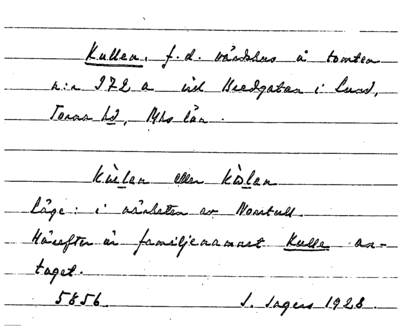 Kullen, f.d. värdshus å tomten
n:r 372 a vid Bredgatan i Lund,
Torna hd, Mhs län.
eller
Läge: i närheten av Norrtull.
Härefter är familjenamnet Kulle an-
taget.
5856. 1928.